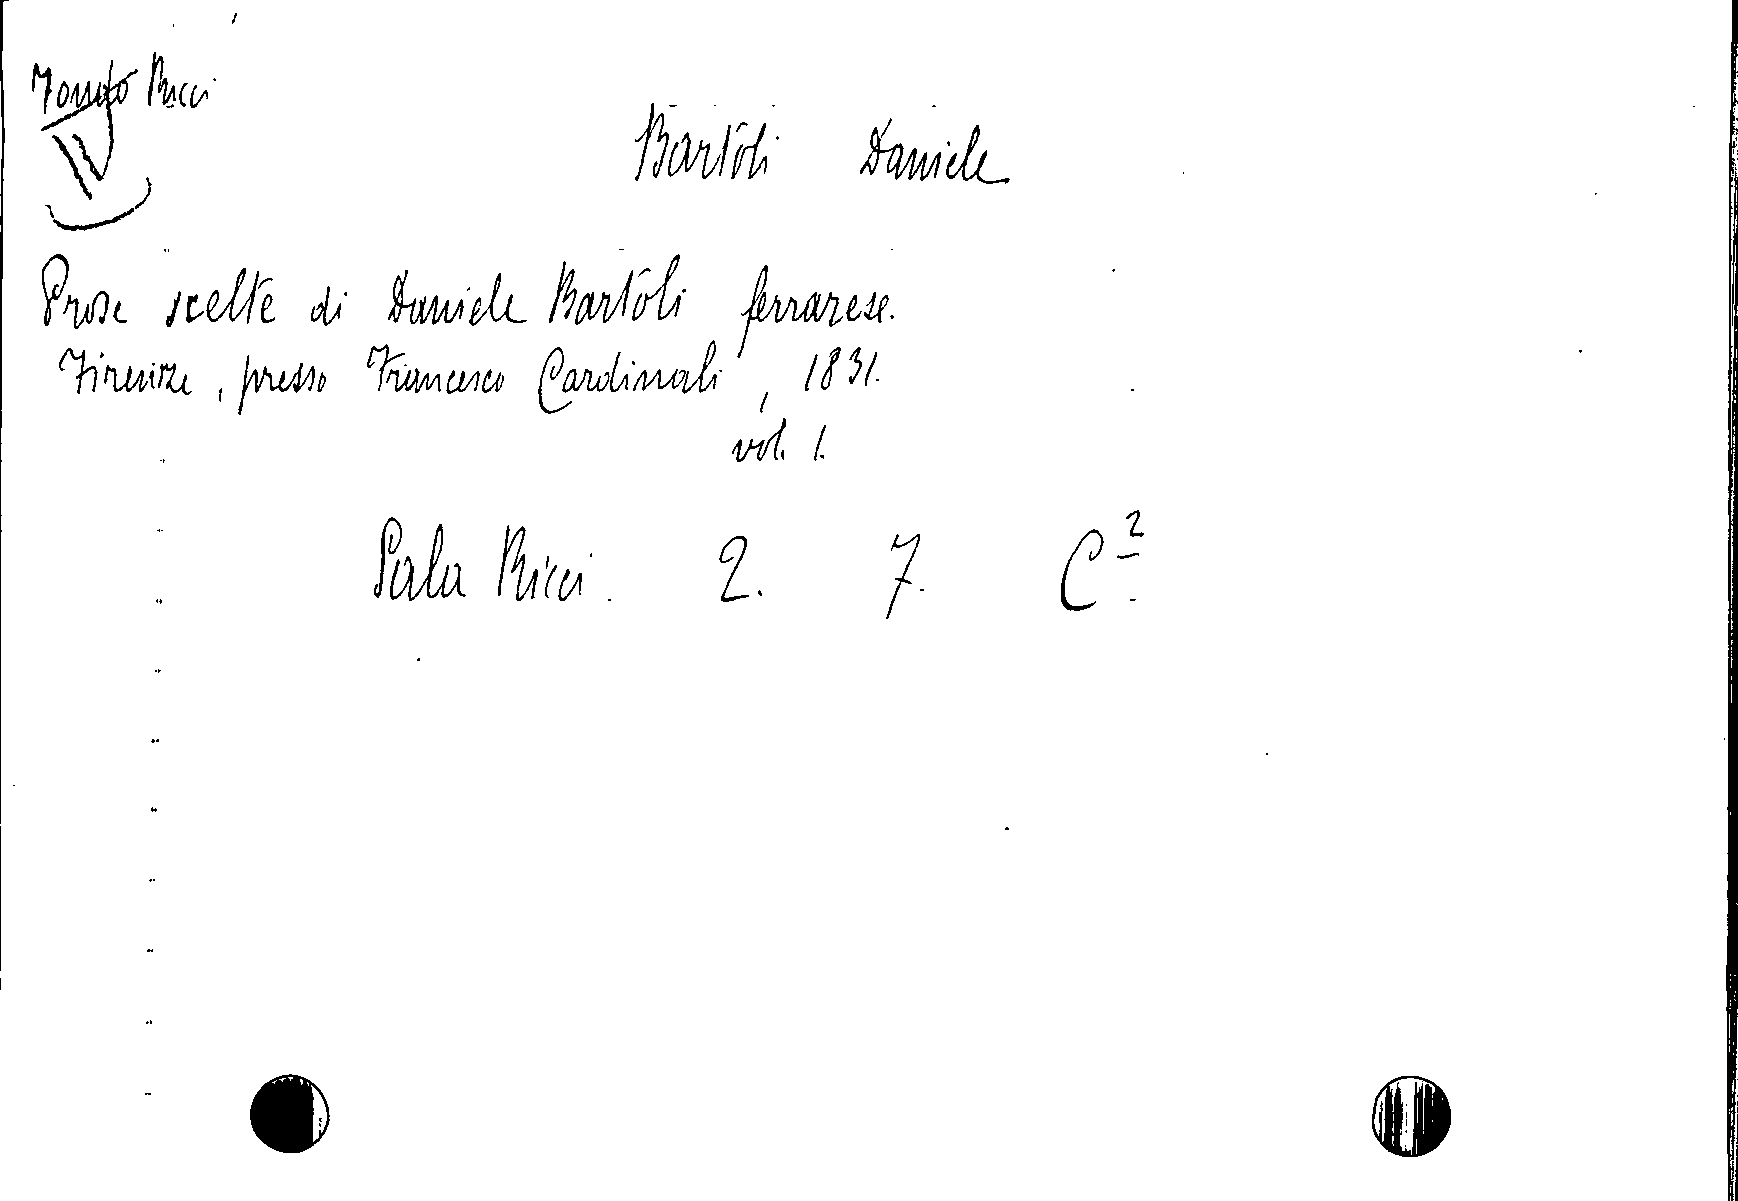 Fondo Ricci
Bartoli Daniele
Prose scelte di Daniele Bartoli ferrarese.
Firenze, presso Francesco Cardinali, 1831.
vol. 1.
Sala Ricci. 2. 7. C²